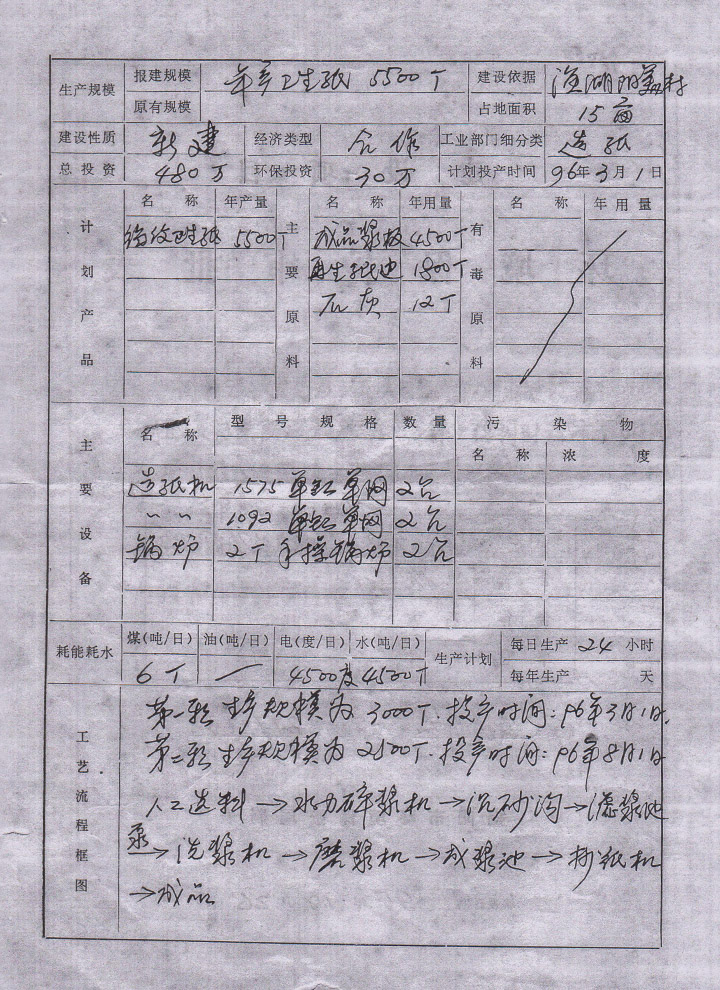 生产规模 报建规模 年产卫生纸 5500T 建设依据 渔湖阳美村
原有规模 占地面积 15亩
建设性质 新建 经济类型 合作 工业部门细分类 造纸
总投资 480万 环保投资 30万 计划投产时间 96年3月1日
计划产品 名称 年产量 主要原料 名称 年用量 有毒原料 名称 年用量
卫生纸 5500T 成品浆板 4500T
再生纸 1800T
石灰 12T
主要设备 名称 型号规格 数量 污染物
名称 浓度
造纸机 1575 单缸单网 2台
〃 〃 1092 单缸单网 2台
锅炉 2T 手操锅炉 2台
耗能耗水 煤(吨/日) 油(吨/日) 电(度/日) 水(吨/日) 生产计划 每日生产 24 小时
6T — 4500度 4500T 每年生产 天
工艺流程框图
第一期生产规模为 3000T. 投产时间: 96年3月1日.
第二期生产规模为 2500T. 投产时间: 96年8月1日
人工选料 → 水力碎浆机 → 沉砂沟 → 滤浆池
泵→ 洗浆机 → 磨浆机 → 成浆池 → 抄纸机
→成品